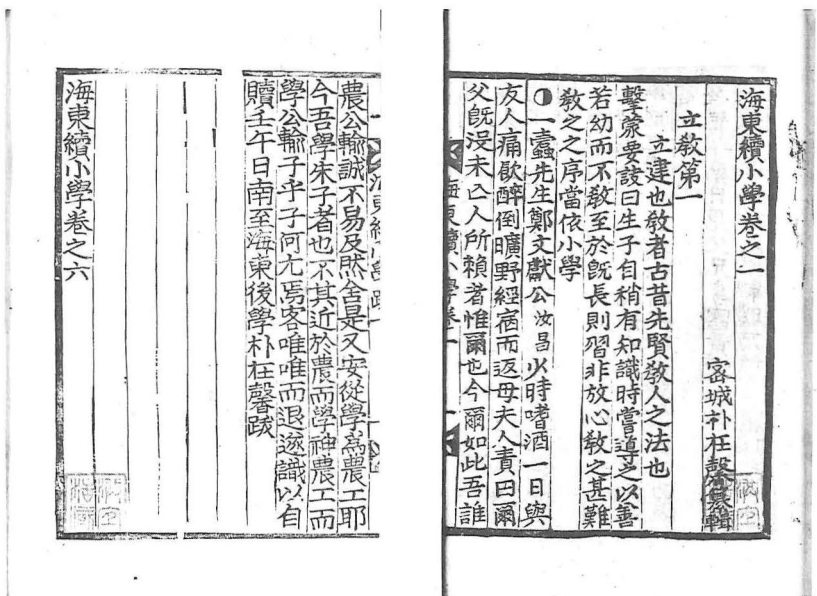 海東續小學卷之一
密城朴在馨纂輯
立教第一
立建也教者古昔先賢教人之法也
擊蒙要訣曰生子自稍有知識時當導之以善
若幼而不教至於旣長則習非放心教之甚難
教之之序當依小學
一蠹先生鄭文獻公汝昌少時嗜酒一日與
友人痛飮醉倒曠野經宿而返母夫人責曰爾
父旣沒未亡人所賴者惟爾也今爾如此吾誰
海東續小學卷一
海東續小學跋
農公輸誠不易及然舍是又安從學爲農工耶
今吾學朱子者也不其近於農而學神農工而
學公輸子乎子何尤焉客唯唯而退遂識以自
贖壬午日南至海東後學朴在馨跋
海東續小學卷之六